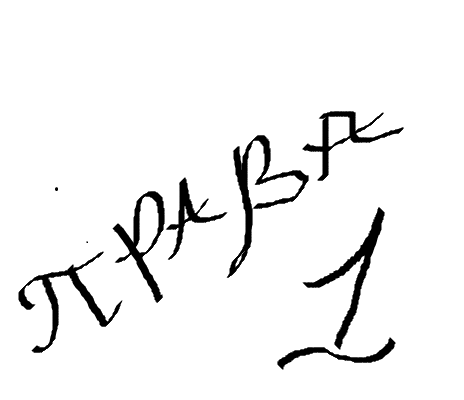 ПРАВА
1